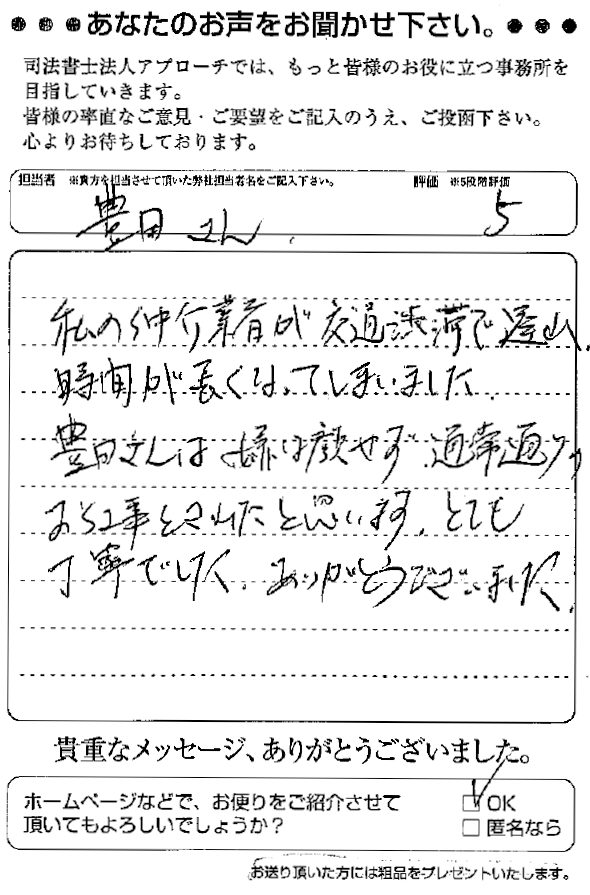 ●●●あなたのお声をお聞かせ下さい。●●●
司法書士法人アプローチでは、もっと皆様のお役に立つ事務所を
目指していきます。
皆様の率直なご意見・ご要望をご記入のうえ、ご投函下さい。
心よりお待ちしております。
担当者 ※貴方を担当させて頂いた弊社担当者名をご記入下さい。 評価 ※5段階評価
豊田さん. 5
私の仲介業者が交通渋滞で遅れ、
時間が長くなってしまいました。
豊田さんは嫌な顔せず、通常通り
お仕事をされたと思います。とても
丁寧でした。ありがとうございました。
貴重なメッセージ、ありがとうございました。
ホームページなどで、お便りをご紹介させて
頂いてもよろしいでしょうか？
OK
匿名なら
お送り頂いた方には粗品をプレゼントいたします。